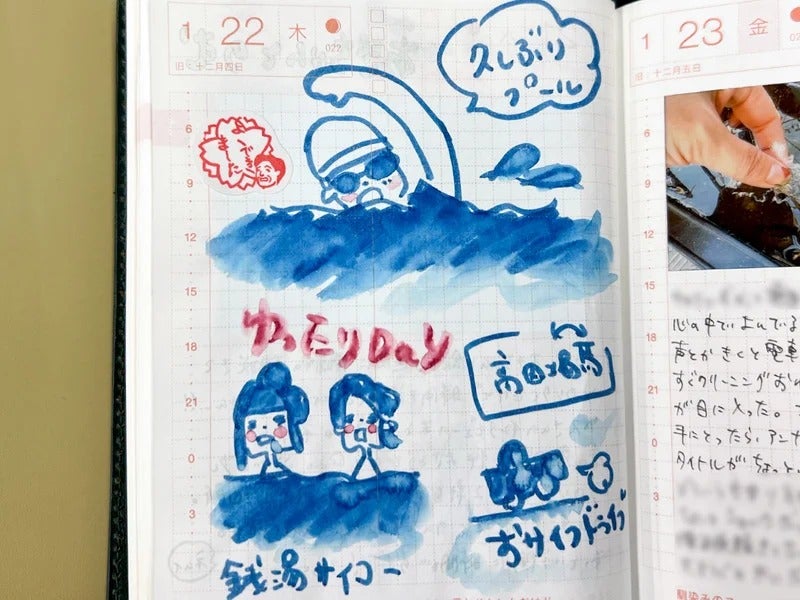 1 22 木
022
旧:十二月四日
久しぶり
プール
6
9
12
15
18
21
0
3
ゆったりDay
高田場馬
銭湯サイコー
1 23 金
旧:十二月五日
6
9
12
15
18
21
0
3
心の中でよんでいる
声とかきくと電車
すぐクリーニング
が目に入った。
手にとったら、アン
タイトルがちょっと